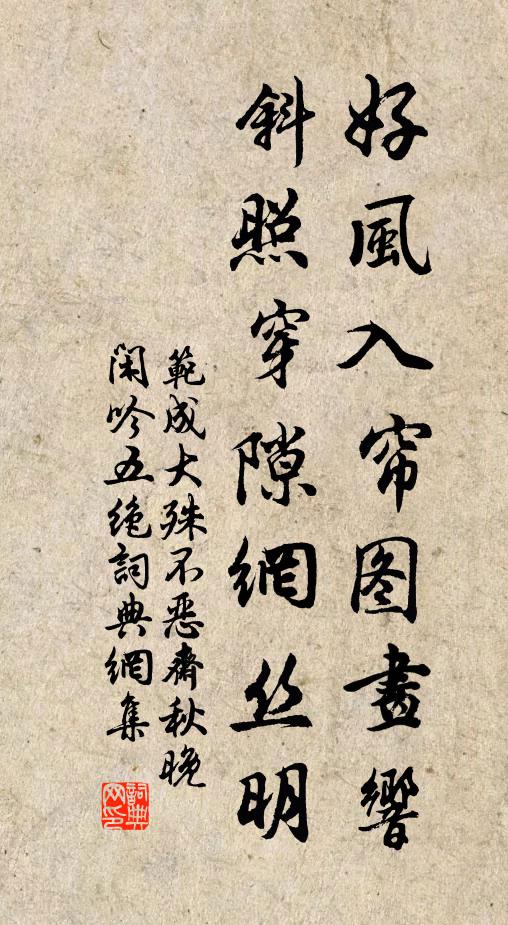 好風入帘图畫響
斜照穿隙網丝明
範成大殊不恶齋秋晚
閑吟五绝詞典網集
詞典网印